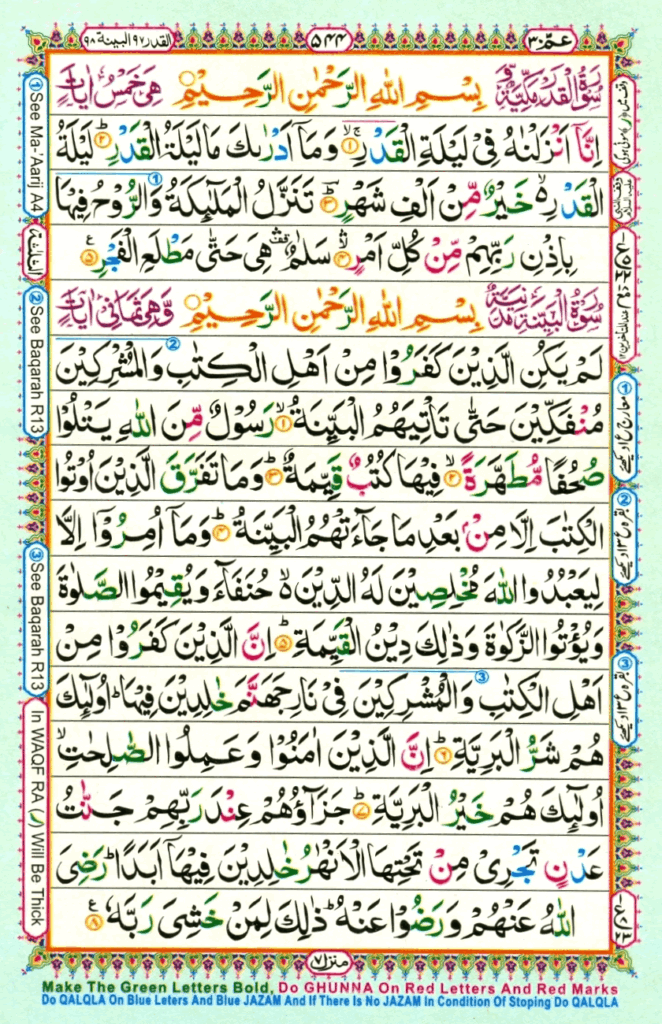 عمّ ٣٠
٥٤٤
القدر ٩٧ البينة ٩٨
سُوْرَةُ الْقَدْرِ مَكِّيَّةٌ بِسْمِ اللهِ الرَّحْمٰنِ الرَّحِيْمِ هِيَ خَمْسُ اٰيَاتٍ
اِنَّاۤ اَنْزَلْنٰهُ فِيْ لَيْلَةِ الْقَدْرِ ۝١ وَمَاۤ اَدْرٰىكَ مَا لَيْلَةُ الْقَدْرِ ۝٢ لَيْلَةُ
الْقَدْرِ ەۙ خَيْرٌ مِّنْ اَلْفِ شَهْرٍ ۝٣ تَنَزَّلُ الْمَلٰٓئِكَةُ وَالرُّوْحُ فِيْهَا
بِاِذْنِ رَبِّهِمْ مِّنْ كُلِّ اَمْرٍ ۝٤ سَلٰمٌ هِيَ حَتّٰى مَطْلَعِ الْفَجْرِ ۝٥
سُوْرَةُ الْبَيِّنَةِ مَدَنِيَّةٌ بِسْمِ اللهِ الرَّحْمٰنِ الرَّحِيْمِ وَّهِيَ ثَمَانِيْ اٰيَاتٍ
لَمْ يَكُنِ الَّذِيْنَ كَفَرُوْا مِنْ اَهْلِ الْكِتٰبِ وَالْمُشْرِكِيْنَ
مُنْفَكِّيْنَ حَتّٰى تَاْتِيَهُمُ الْبَيِّنَةُ ۝١ رَسُوْلٌ مِّنَ اللهِ يَتْلُوْا
صُحُفًا مُّطَهَّرَةً ۝٢ فِيْهَا كُتُبٌ قَيِّمَةٌ ۝٣ وَمَا تَفَرَّقَ الَّذِيْنَ اُوْتُوا
الْكِتٰبَ اِلَّا مِنْۢ بَعْدِ مَا جَآءَتْهُمُ الْبَيِّنَةُ ۝٤ وَمَاۤ اُمِرُوْۤا اِلَّا
لِيَعْبُدُوا اللهَ مُخْلِصِيْنَ لَهُ الدِّيْنَ ەۙ حُنَفَآءَ وَيُقِيْمُوا الصَّلٰوةَ
وَيُؤْتُوا الزَّكٰوةَ وَذٰلِكَ دِيْنُ الْقَيِّمَةِ ۝٥ اِنَّ الَّذِيْنَ كَفَرُوْا مِنْ
اَهْلِ الْكِتٰبِ وَالْمُشْرِكِيْنَ فِيْ نَارِ جَهَنَّمَ خٰلِدِيْنَ فِيْهَا ؕ اُولٰٓئِكَ
هُمْ شَرُّ الْبَرِيَّةِ ۝٦ اِنَّ الَّذِيْنَ اٰمَنُوْا وَعَمِلُوا الصّٰلِحٰتِ ۙ
اُولٰٓئِكَ هُمْ خَيْرُ الْبَرِيَّةِ ۝٧ جَزَآؤُهُمْ عِنْدَ رَبِّهِمْ جَنّٰتُ
عَدْنٍ تَجْرِيْ مِنْ تَحْتِهَا الْاَنْهٰرُ خٰلِدِيْنَ فِيْهَاۤ اَبَدًا ؕ رَضِيَ
اللهُ عَنْهُمْ وَرَضُوْا عَنْهُ ؕ ذٰلِكَ لِمَنْ خَشِيَ رَبَّهٗ ۝٨
منزل ٧
① See Ma-'Aarij A4
② See Baqarah R13
③ See Baqarah R13
In WAQF RA (ر) Will Be Thick
① معارج ع ا دیکھئے
② بقرہ ع ١٣ دیکھئے
③ بقرہ ع ١٣ دیکھئے
Make The Green Letters Bold, Do GHUNNA On Red Letters And Red Marks
Do QALQLA On Blue Leters And Blue JAZAM And If There Is No JAZAM In Condition Of Stoping Do QALQLA